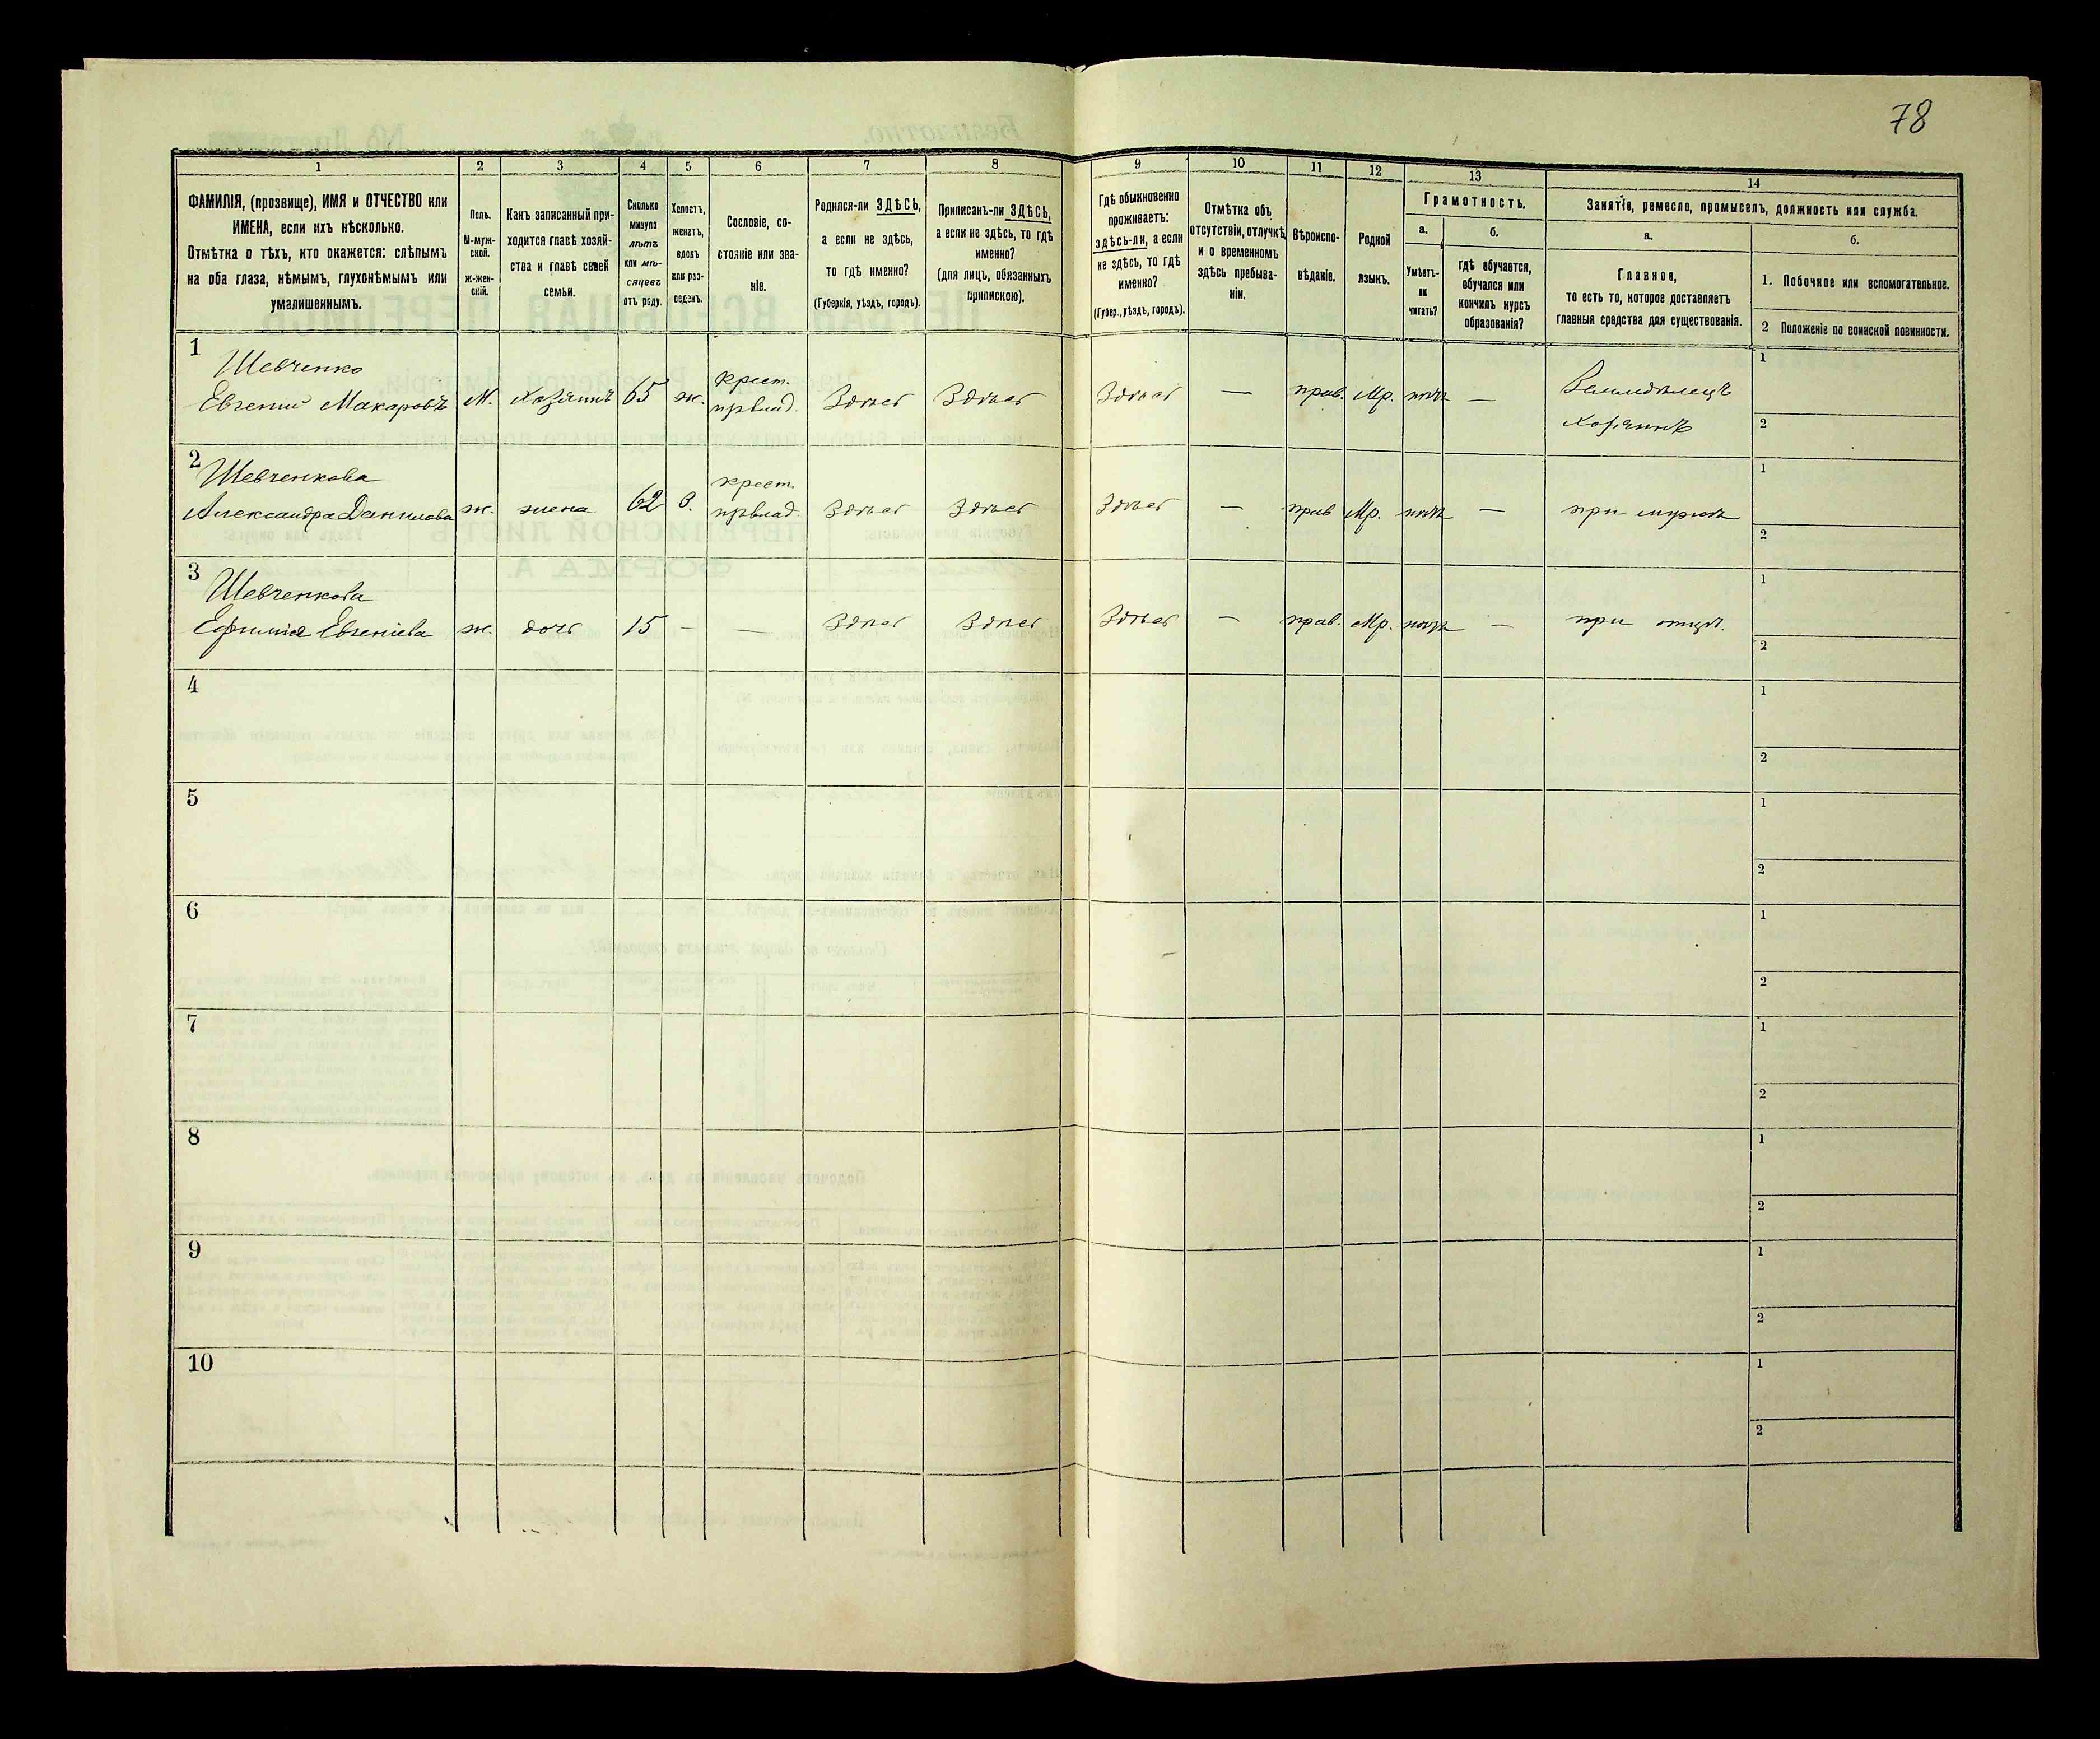 78
1 2 3 4 5 6 7 8 9 10 11 12 13 14
ФАМИЛІЯ, (прозвище), ИМЯ и ОТЧЕСТВО или
ИМЕНА, если ихъ нѣсколько.
Отмѣтка о тѣхъ, кто окажется: слѣпымъ
на оба глаза, нѣмымъ, глухонѣмымъ или
умалишеннымъ.
Полъ.
М-муж-
ской.
Ж-жен-
скій.
Какъ записанный при-
ходится главѣ хозяй-
ства и главѣ своей
семьи.
Сколько
минуло
лѣтъ
или мѣ-
сяцевъ
отъ роду.
Холостъ,
женатъ,
вдовъ
или раз-
веденъ.
Сословіе, со-
стояніе или зва-
ніе.
Родился-ли ЗДѢСЬ,
а если не здѣсь,
то гдѣ именно?
(Губернія, уѣздъ, городъ).
Приписанъ-ли ЗДѢСЬ,
а если не здѣсь, то гдѣ
именно?
(для лицъ, обязанныхъ
припискою).
Гдѣ обыкновенно
проживаетъ:
здѣсь-ли, а если
не здѣсь, то гдѣ
именно?
(Губер., уѣздъ, городъ).
Отмѣтка объ
отсутствіи, отлучкѣ
и о временномъ
здѣсь пребыва-
ніи.
Вѣроиспо-
вѣданіе.
Родной
языкъ.
Грамотность.
а.
Умѣетъ-
ли
читать?
б.
гдѣ обучается,
обучался или
кончилъ курсъ
образованія?
Занятіе, ремесло, промыселъ, должность или служба.
а.
Главное,
то есть то, которое доставляетъ
главныя средства для существованія.
б.
1. Побочное или вспомогательное.
2 Положеніе по воинской повинности.
1
Шевченко крест. 1
Евгений Макаровъ М. Хозяинъ 65 ж. Здѣсь Здѣсь Здѣсь — прав. Мр. нѣтъ — Земледѣлецъ
Хозяинъ 2
2
Шевченкова крест. 1
Александра Данилова ж. жена 62 З. Здѣсь Здѣсь Здѣсь — прав Мр. нѣтъ — при мужѣ
2
3
Шевченкова 1
Ефимія Евгеніева ж. дочь 15 — — Здѣсь Здѣсь Здѣсь — прав. Мр. нѣтъ — при отцѣ.
2
4 1
2
5 1
2
6 1
2
7 1
2
8 1
2
9 1
2
10 1
2